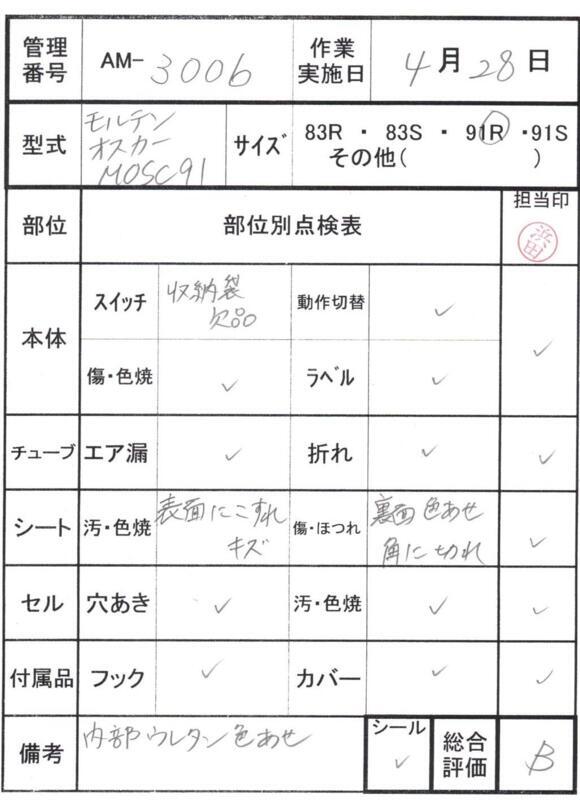 管理番号 AM-3006 作業実施日 4月28日
型式 モルテン オスカー MOSC91 サイズ 83R ・ 83S ・ 91R ・91S
その他( )
部位 部位別点検表 担当印
浜田
本体 スイッチ 収納袋欠品 動作切替 ✓ ✓
傷・色焼 ✓ ラベル ✓
チューブ エア漏 ✓ 折れ ✓ ✓
シート 汚・色焼 表面にこすれキズ 傷・ほつれ 裏面色あせ 角に切れ ✓
セル 穴あき ✓ 汚・色焼 ✓ ✓
付属品 フック ✓ カバー ✓ ✓
備考 内部ウレタン色あせ シール ✓ 総合評価 B